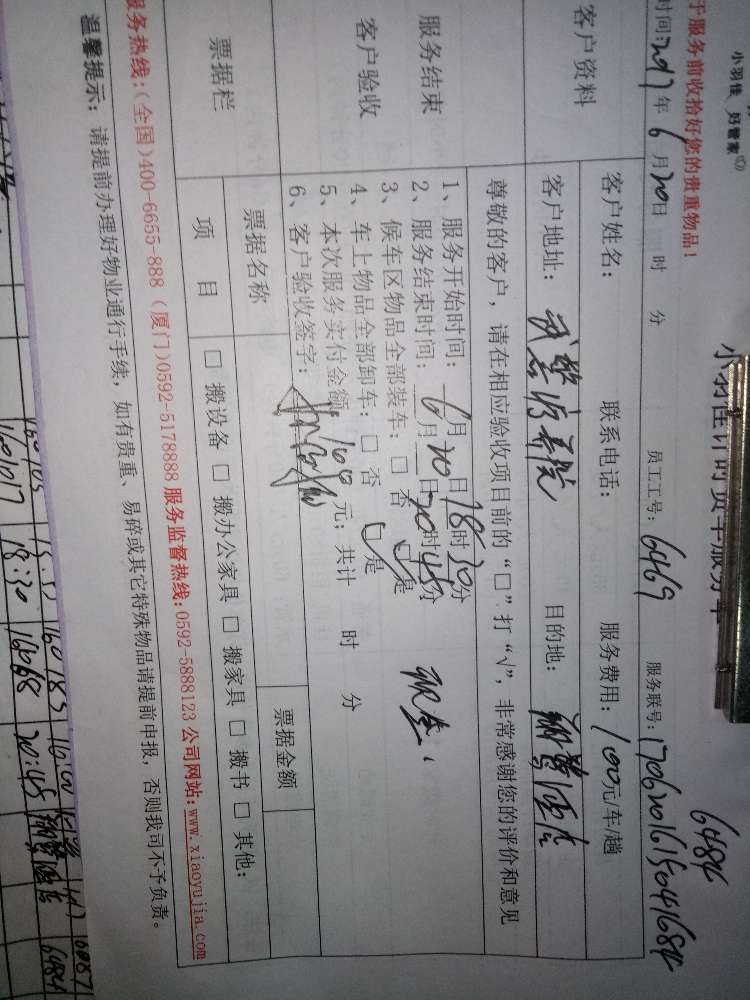 小羽佳 好管家
小羽佳计时货车服务单
于服务前收拾好您的贵重物品!
6484
时间:2017年6月20日 时 分 员工工号: 6469 服务联号: 170620161504168
客户资料
客户姓名: 联系电话: 服务费用: 100元/车/趟
客户地址: 目的地:
服务结束
客户验收
尊敬的客户，请在相应验收项目前的“□”打“√”，非常感谢您的评价和意见
1、服务开始时间: 6月20日18时30分
2、服务结束时间: 6月20日20时45分
3、候车区物品全部装车: □ 否 ☑ 是
4、车上物品全部卸车: □ 否 ☑ 是
5、本次服务实付金额 100 元; 共计 时 分
6、客户验收签字:
票据栏
票据名称 票据金额
项 目 □ 搬设备 □ 搬办公家具 □ 搬家具 □ 搬书 □ 其他:
服务热线:(全国)400-6655-888 (厦门)0592-5178888 服务监督热线:0592-5888123 公司网站:www.xiaoyujia.com
温馨提示: 请提前办理好物业通行手续，如有贵重、易碎或其它特殊物品请提前申报，否则我司不予负责。
18:30 16068 20:45 6484